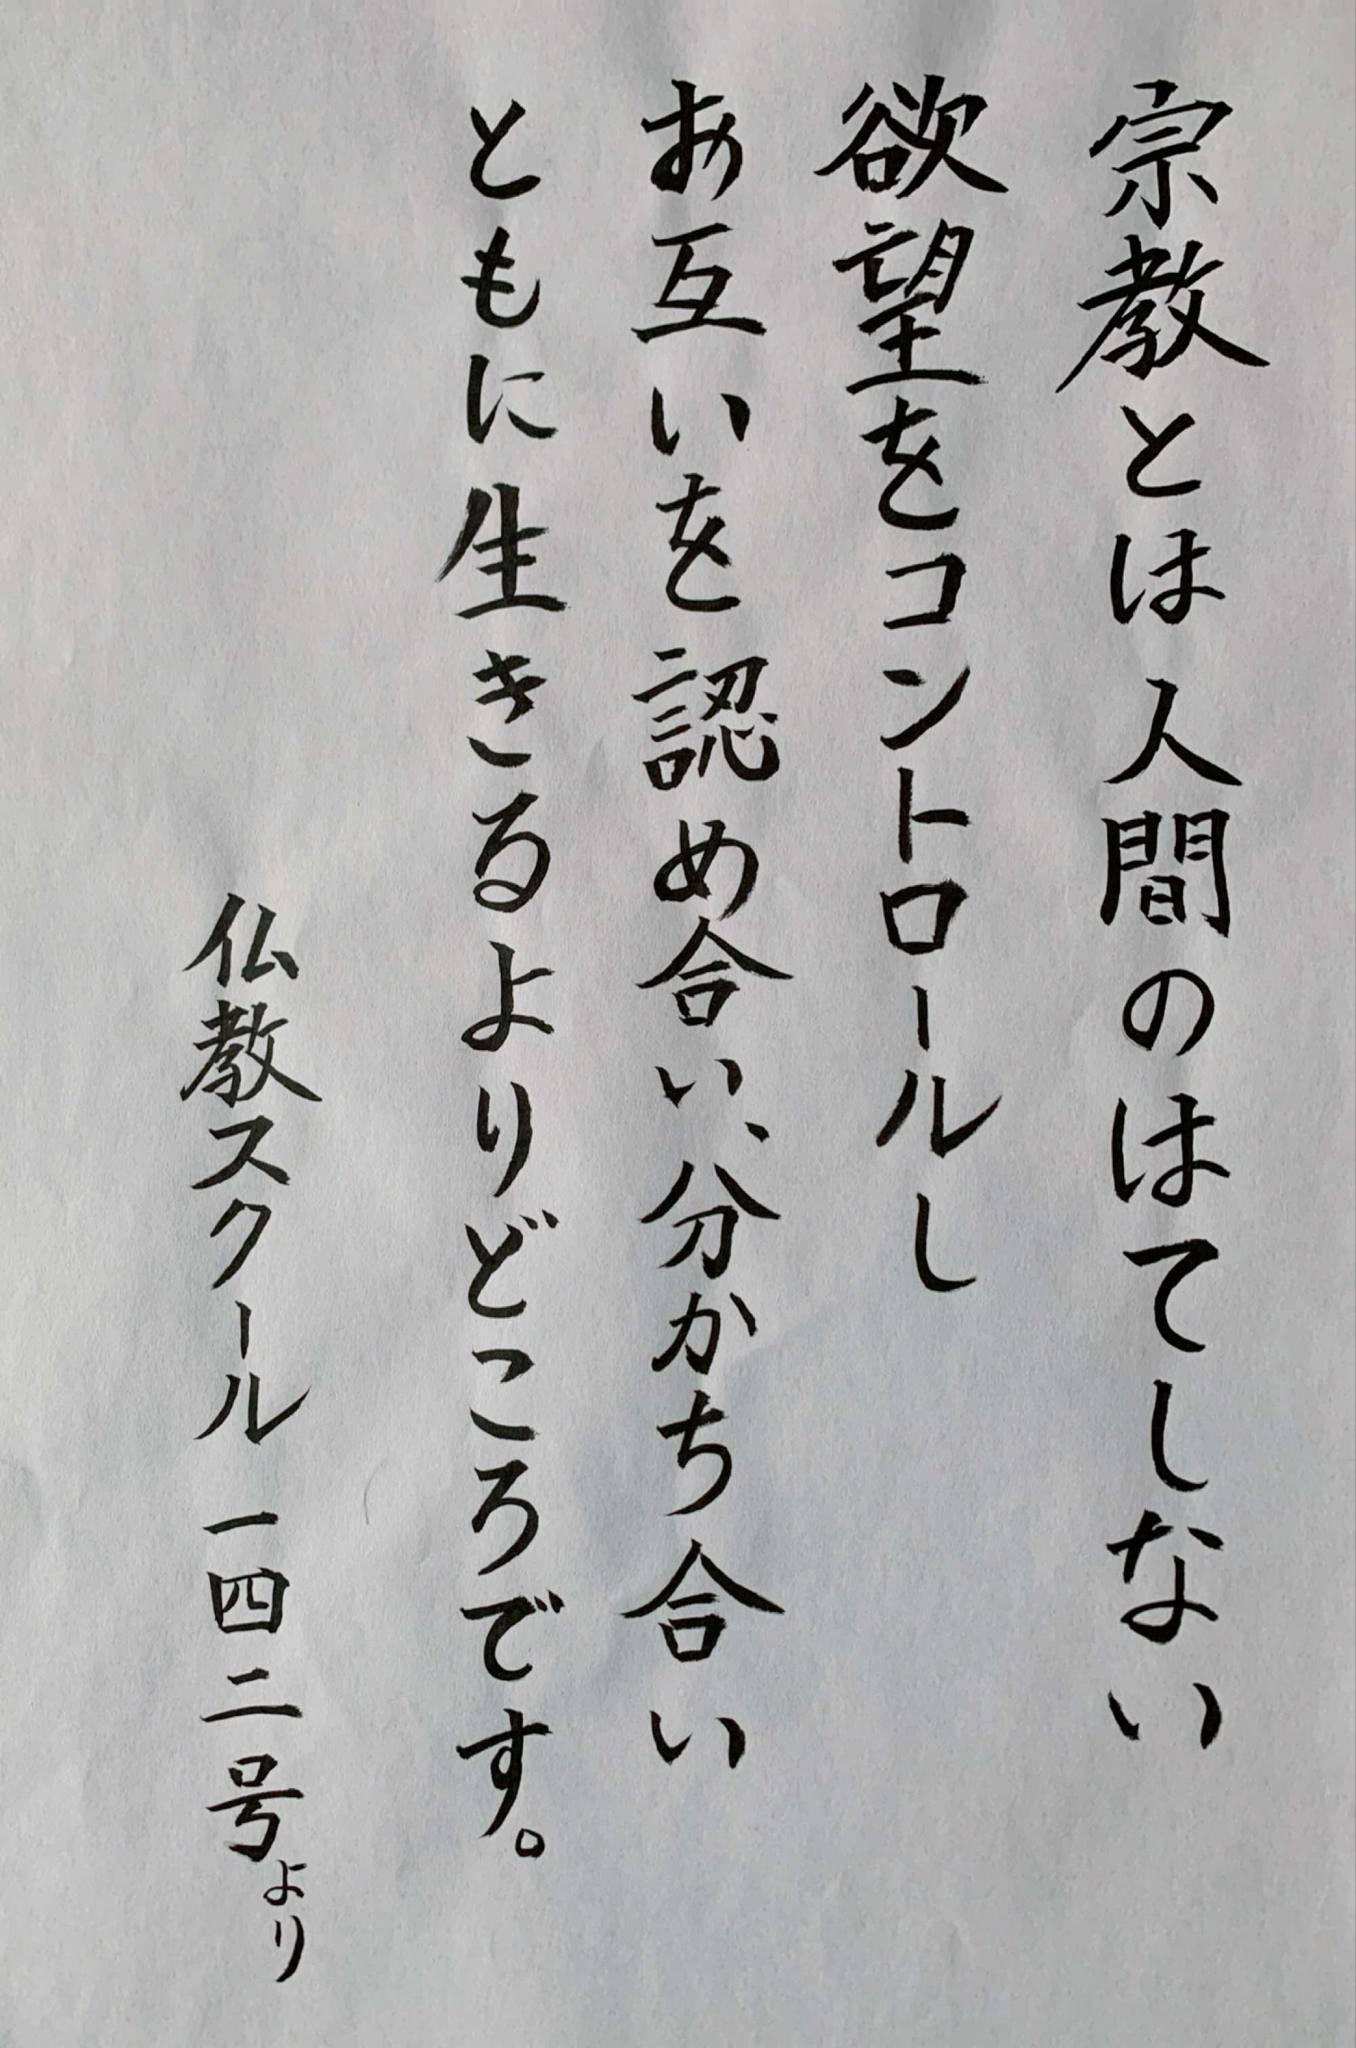 宗教とは人間のはてしない
欲望をコントロールし
お互いを認め合い、分かち合い
ともに生きるよりどころです。
仏教スクール一四二号より